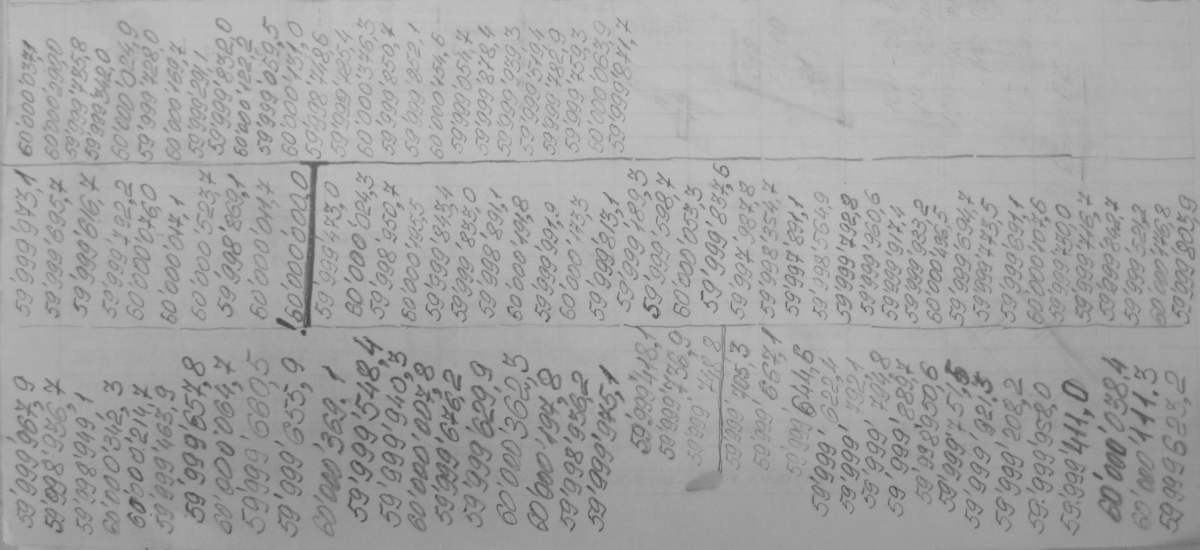 59'999'967,9
59'998'936,7
59'998'949,1
60'000'342,3
60'000'214,7
59'999'463,9
59'999'657,8
60'000'064,7
59'999'660,5
59'999'653,9
60'000'369,1
59'999'548,4
59'999'940,3
60'000'007,8
59'999'676,2
59'999'629,9
60'000'362,5
60'000'194,8
59'998'936,2
59'999'975,1
59'999'418,1
59'999'736,9
59'999'705,3
59'999'667,1
59'999'644,6
59'999'622,4
59'999'289,7
59'998'950,6
59'999'208,2
59'999'958,0
59.999'411,0
60'000'038,4
60'000'111.3
59.999623,2
59'999'973,1
59'999'695,7
59'999'616,7
59'999'792,2
60'000'076,0
60'000'017,1
60'000'523,7
59'998'869,1
60'000'011,7
! 60'000'000,0
59'999'473,0
60'000'024,3
59'998'950,7
59'999'843,4
59'999'883,0
59'998'891,1
60'000'191,8
59'999'991,9
60'000'173,3
59'999'813,1
59'999'189,3
59'999'598,7
60'000'053,3
59'999'837,6
59'997'987,8
59'998'354,7
59'997'891,1
59'998'564,9
59'999'792,8
59'999'960,6
59'999'917,4
59'999'933,2
60'000'496,5
59'999'694,7
59'999'773,5
59'999'691,1
60'000'107,6
59'999'750,0
59'999'716,7
60'000'146,8
59'000'803,9
60'000'037,1
60'000'290,0
59'999'735,8
59'999'342,0
60'000'024,9
59'999'728,0
60'000'169,7
59'999'291,1
59'999'832,0
60'000'122,2
59'999'059,5
60'000'131,0
59'998'748,6
59'999'785,4
60'000'376,3
59'999'850,7
59'999'852,1
60'000'454,6
59'999'054,7
59'999'878,4
59'999'039,3
59'999'519,4
59'999'782,9
59'999'753,3
60'000'063,9
59'999'841,7